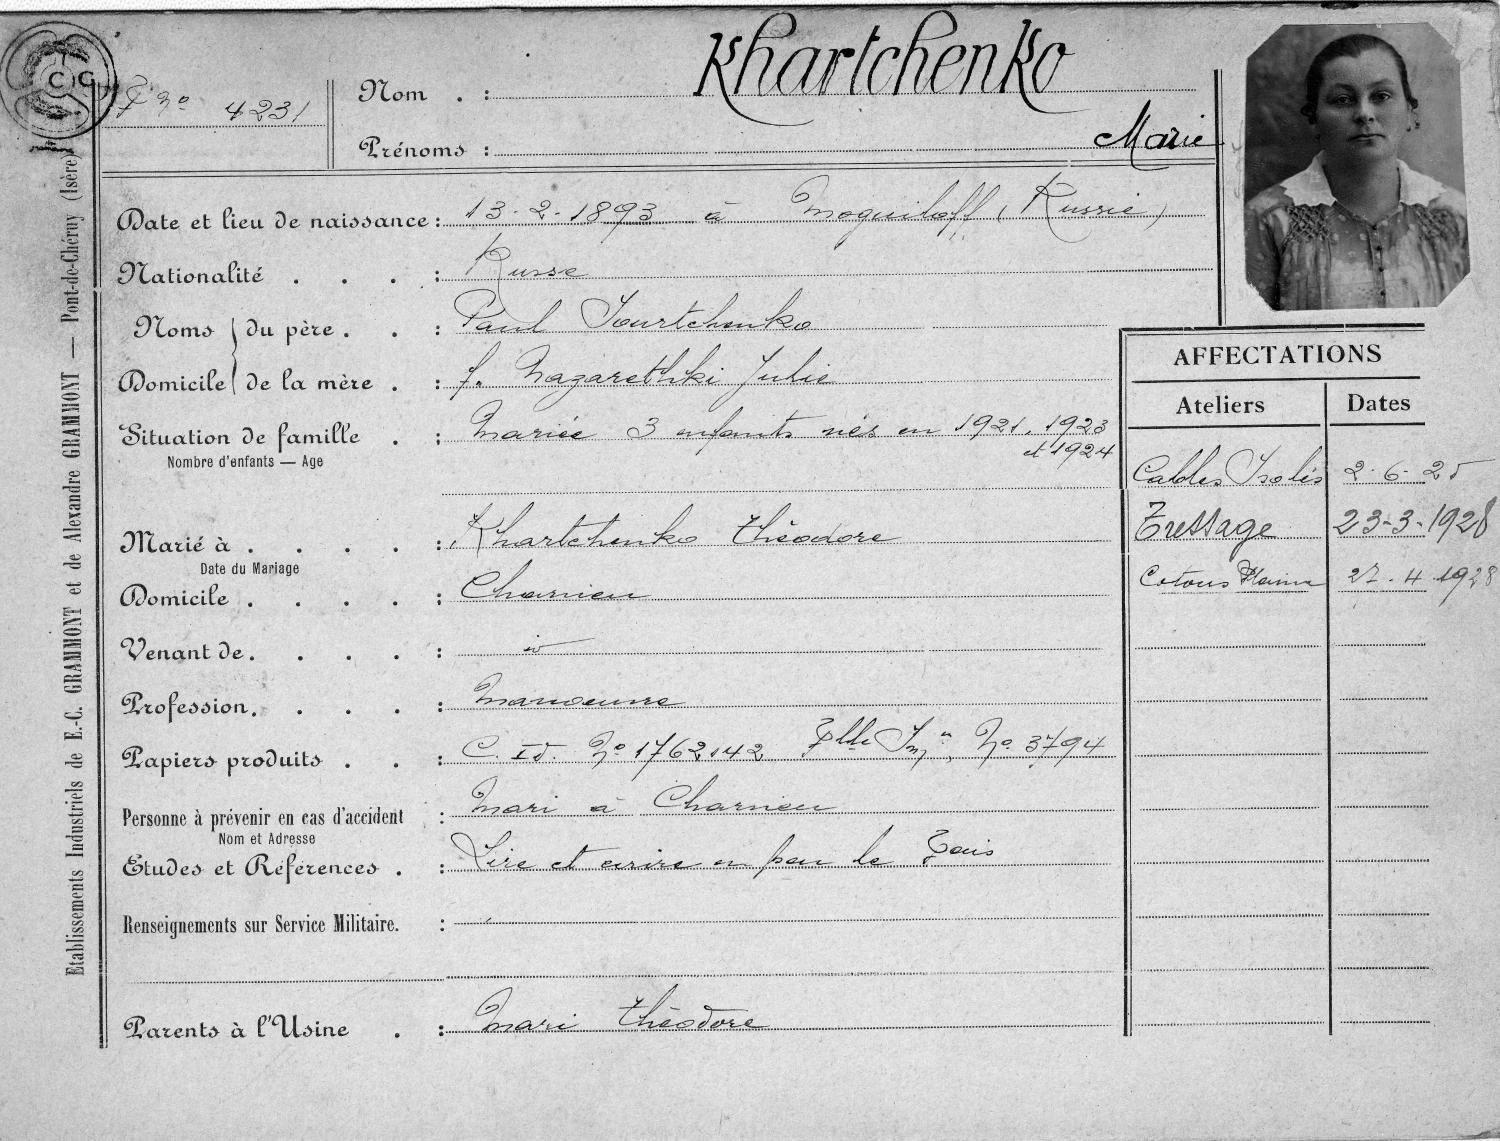 C G
F no 4231
Nom . : Khartchenko
Prénoms : Marie
Date et lieu de naissance : 13-2-1893 à Moguiloff (Russie)
Nationalité . . . : Russe
Noms du père . . : Paul Iourtchenko
Domicile de la mère . : f. Nazarethki Julie
Situation de famille . : Mariée 3 enfants nés en 1921, 1923
et 1924
Nombre d'enfants — Age
Marié à . . . . : Khartchenko Théodore
Date du Mariage
Domicile . . . . : Charvieu
Venant de . . . . :
Profession . . . . : Manoeuvre
Papiers produits . . : C. Id. No 1762142 No 3794
Personne à prévenir en cas d'accident : Mari à Charvieu
Nom et Adresse
Etudes et Références . : Lire et écrire un peu le
Renseignements sur Service Militaire. :
Parents à l'Usine . : Mari Théodore
AFFECTATIONS
Ateliers Dates
Cables Isolés 2-6-25
Tressage 23-3-1928
Cotons 27-4-1928
Etablissements Industriels de E.-C. GRAMMONT et de Alexandre GRAMMONT — Pont-de-Chéruy (Isère)